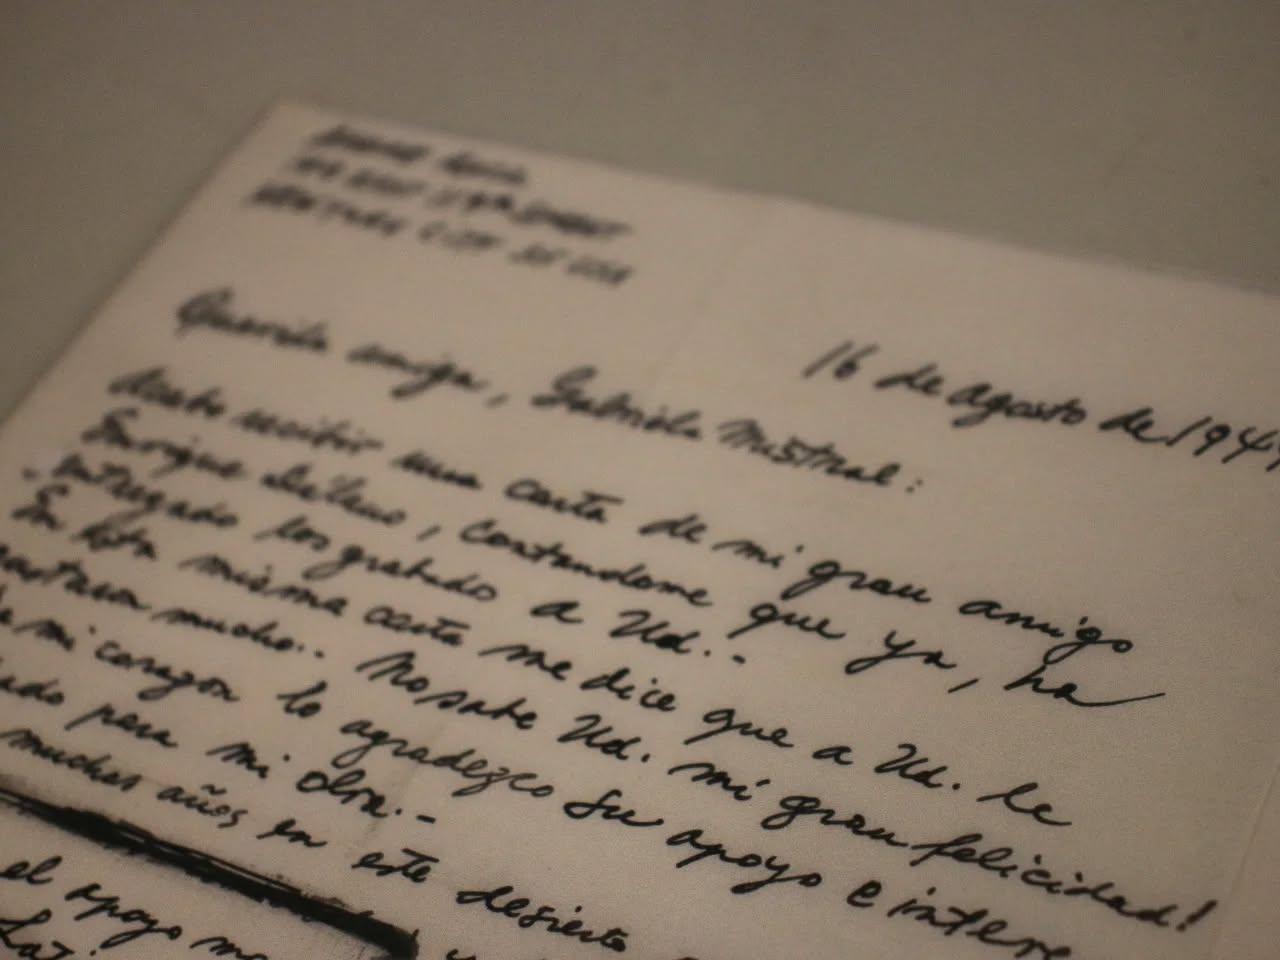 16 de agosto de 194
Querida amiga, Gabriela Mistral:
Acabo recibir una carta de mi gran amigo
Enrique contandome que ya, ha
entregado los grabados a Ud..-
En esta misma carta me dice que a Ud. le
gustaron mucho.. No sabe Ud. mi gran felicidad!
mi corazon lo agradezco su apoyo e intere
para mi obra.-
muchos años en este desierto
el apoyo